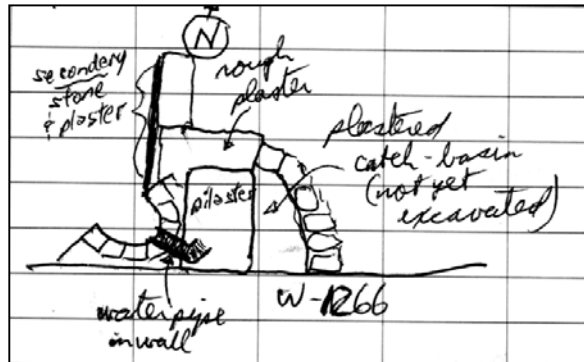 N
secondery
stone
& plaster
rough
plaster
plastered
catch-basin
(not yet
excavated)
pilaster
W-1266
waterpipe
in wall